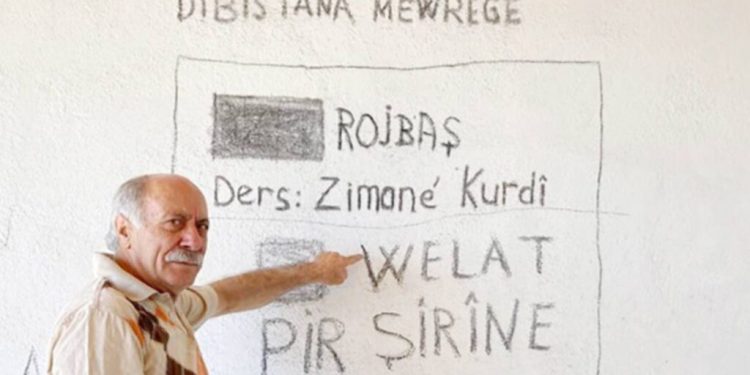 DIBISTANA MEWREGE
ROJBAŞ
Ders: Zimané Kurdî
WELAT
PIR ŞIRÎNE